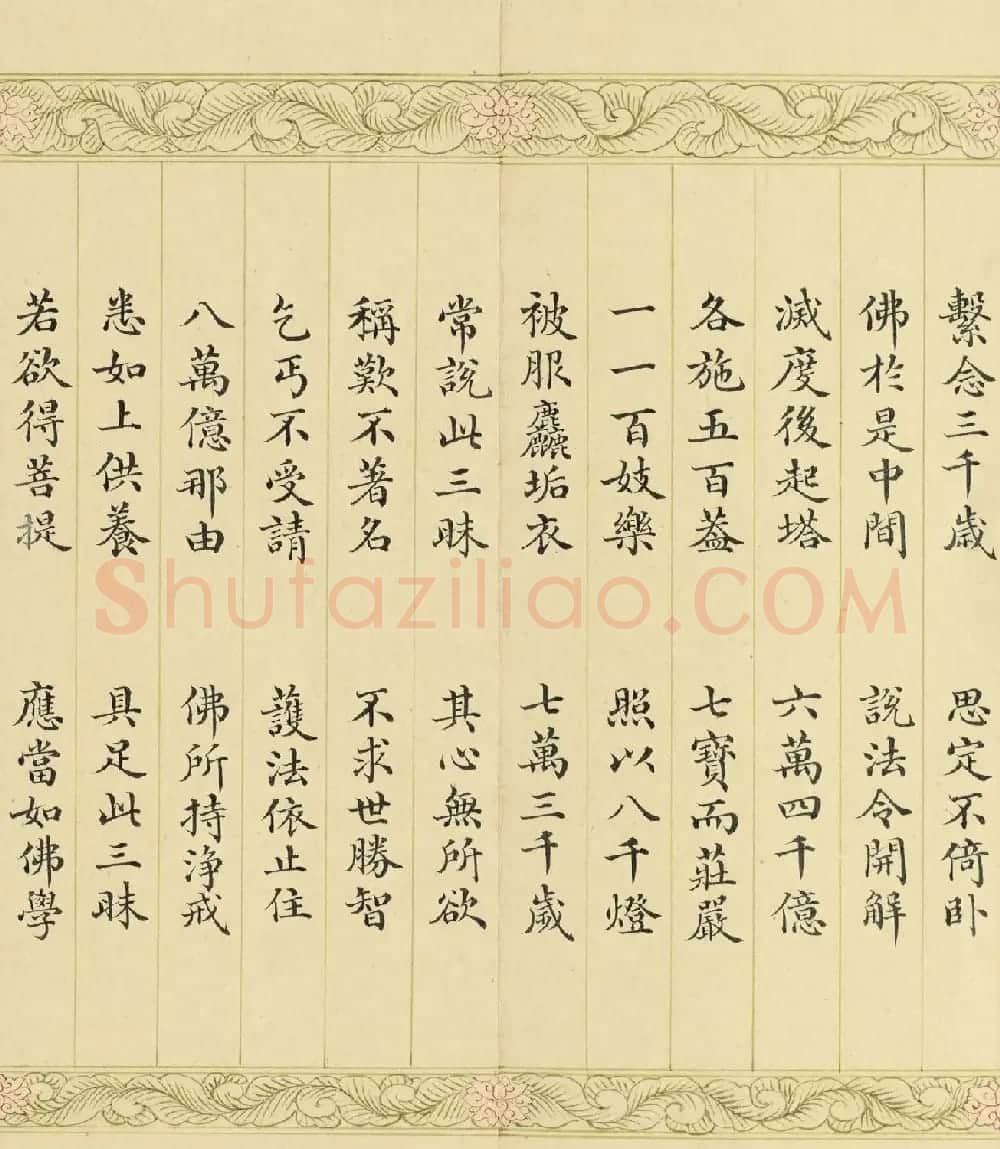 繫念三千歲　思定不倚卧
佛於是中間　說法令開解
滅度後起塔　六萬四千億
各施五百蓋　七寶而莊嚴
一一百妓樂　照以八千燈
被服麤垢衣　七萬三千歲
常說此三昧　其心無所欲
稱歎不著名　不求世勝智
乞丐不受請　護法依止住
八萬億那由　佛所持淨戒
悉如上供養　具足此三昧
若欲得菩提　應當如佛學
Shufaziliao.COM